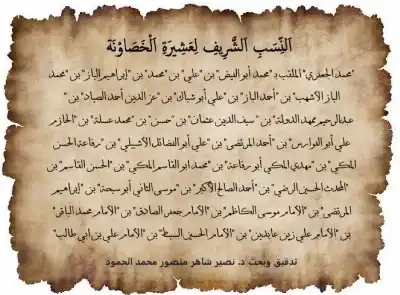 النَّسَبِ الشَّرِيفِ لِعَشِيرَةِ الْخَصَاوْنَة
"محمد الجعدي" الملقب بـ "محمد أبو الفيض" بن "علي" بن "محمد" بن "إبراهيم الباز" بن "محمد
الباز الأشهب" بن "أحمد الباز" بن "علي أبو شباك" بن "عز الدين أحمد الصياد" بن"
عبدالرحيم ممهد الدولة" بن "سيف الدين عثمان" بن "حسن" بن "محمد عسلة" بن "الحازم
علي أبو الفوارس" بن "أحمد المرتضى" بن "علي أبو الفضائل الأشبيلي" بن "رفاعة الحسن
المكي" بن "مهدي المكي أبو رفاعة" بن "محمد ابو القاسم المكي" بن "الحسن القاسم" بن
"المحدث الحسين الرضي" بن "أحمد الصالح الأكبر" بن "موسى الثاني أبو سبحة" بن "إبراهيم
المرتضى" بن "الأمام موسى الكاظم" بن "الأمام جعفر الصادق" بن "الأمام محمد الباقر"
بن "الأمام علي زين عابدين" بن "الأمام الحسين السبط" بن "الأمام علي بن ابي طالب"
تدقيق وبحث د. نصير شاهر منصور محمد الحمود